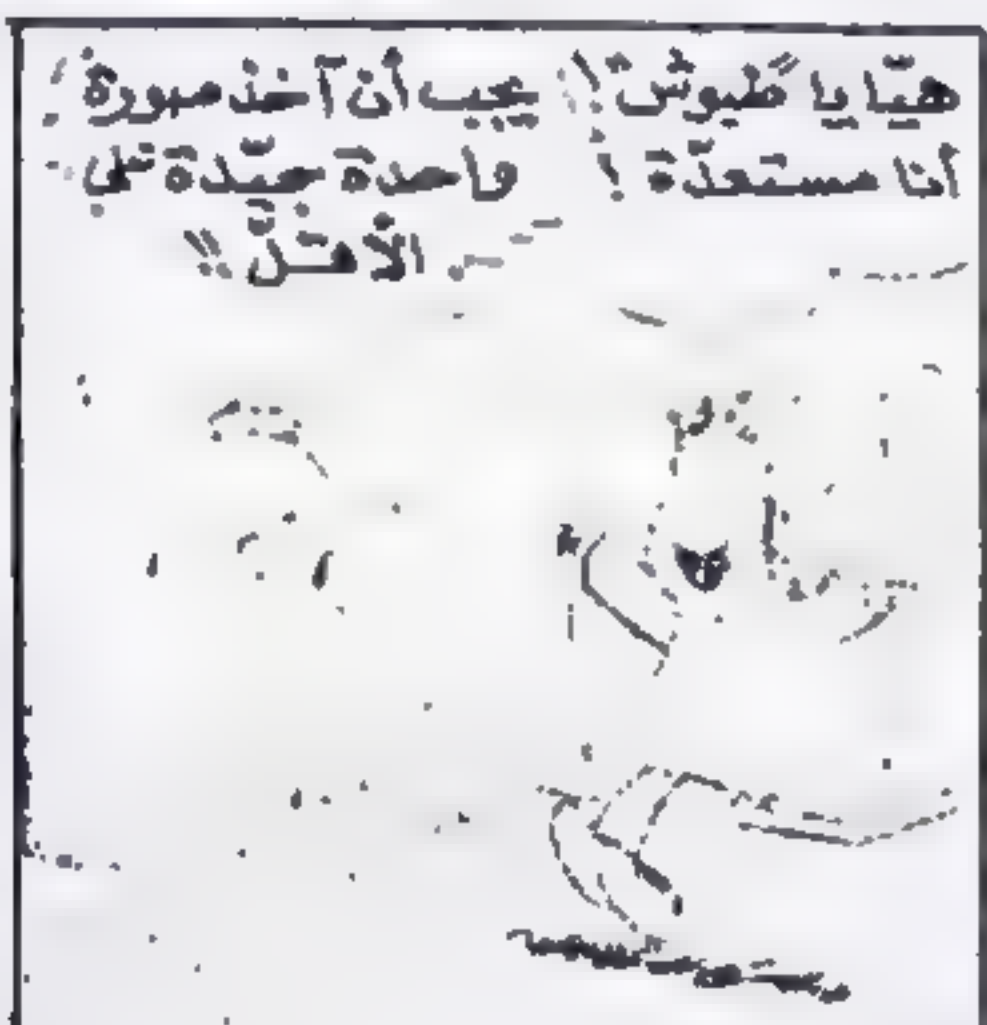 هيّا يا طبوش!
أنا مستعدّة!
يجب أن آخذ صورة
واحدة جيّدة على
الأقلّ!!